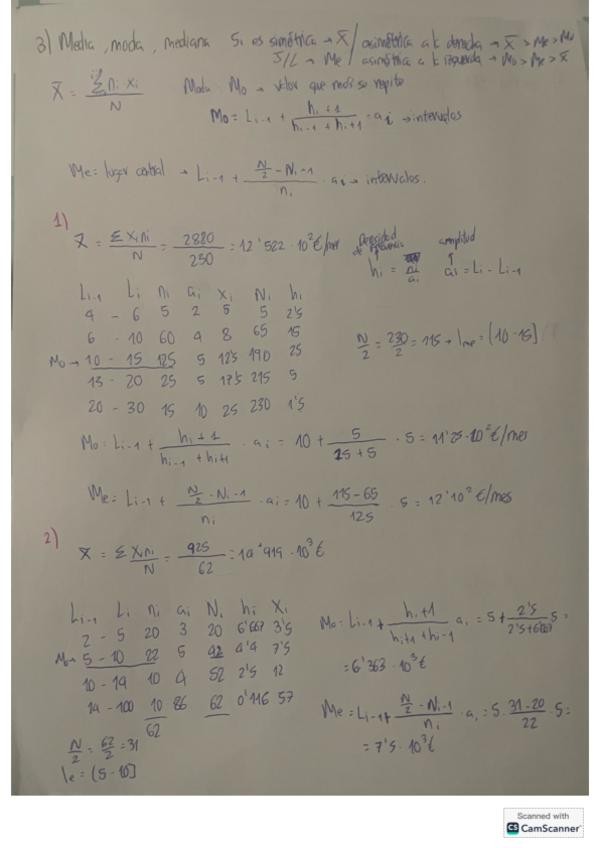 3) Media, moda, mediana Si es simétrica → X̄ / asimétrica a la derecha → X̄ > Me > Mo
J/L → Me / asimétrica a la izquierda → Mo > Me > X̄
X̄ = Σ ni xi / N Moda Mo → valor que más se repite
Mo = Li-1 + hi+1 / hi-1 + hi+1 · ai → intervalos
Me = lugar central → Li-1 + N/2 - Ni-1 / ni · ai → intervalos.
1)
X̄ = Σ xi ni / N = 2880 / 230 = 12'522 · 10² €/mes densidad de frecuencia hi = ni / ai amplitud ai = Li - Li-1
Li-1 Li ni ai xi Ni hi
4 - 6 5 2 5 5 2'5
6 - 10 60 4 8 65 15
Mo → 10 - 15 125 5 12'5 190 25
15 - 20 25 5 17'5 215 5
20 - 30 15 10 25 230 1'5
N/2 = 230/2 = 115 → Ime = (10 - 15]
Mo = Li-1 + hi+1 / hi-1 + hi+1 · ai = 10 + 5 / 15 + 5 · 5 = 11'25 · 10² €/mes
Me = Li-1 + N/2 - Ni-1 / ni · ai = 10 + 115 - 65 / 125 · 5 = 12 · 10² €/mes
2)
X̄ = Σ xi ni / N = 925 / 62 = 14'919 · 10³ €
Li-1 Li ni ai Ni hi xi
2 - 5 20 3 20 6'667 3'5
Mo → 5 - 10 22 5 42 4'4 7'5
10 - 14 10 4 52 2'5 12
14 - 100 10 86 62 0'116 57
62
N/2 = 62/2 = 31
Ie = (5 - 10]
Mo = Li-1 + hi+1 / hi+1 + hi-1 ai = 5 + 2'5 / 2'5 + 6'667 5 =
= 6'363 · 10³ €
Me = Li-1 + N/2 - Ni-1 / ni · ai = 5 · 31 - 20 / 22 · 5 =
= 7'5 · 10³ €
Scanned with
CS CamScanner